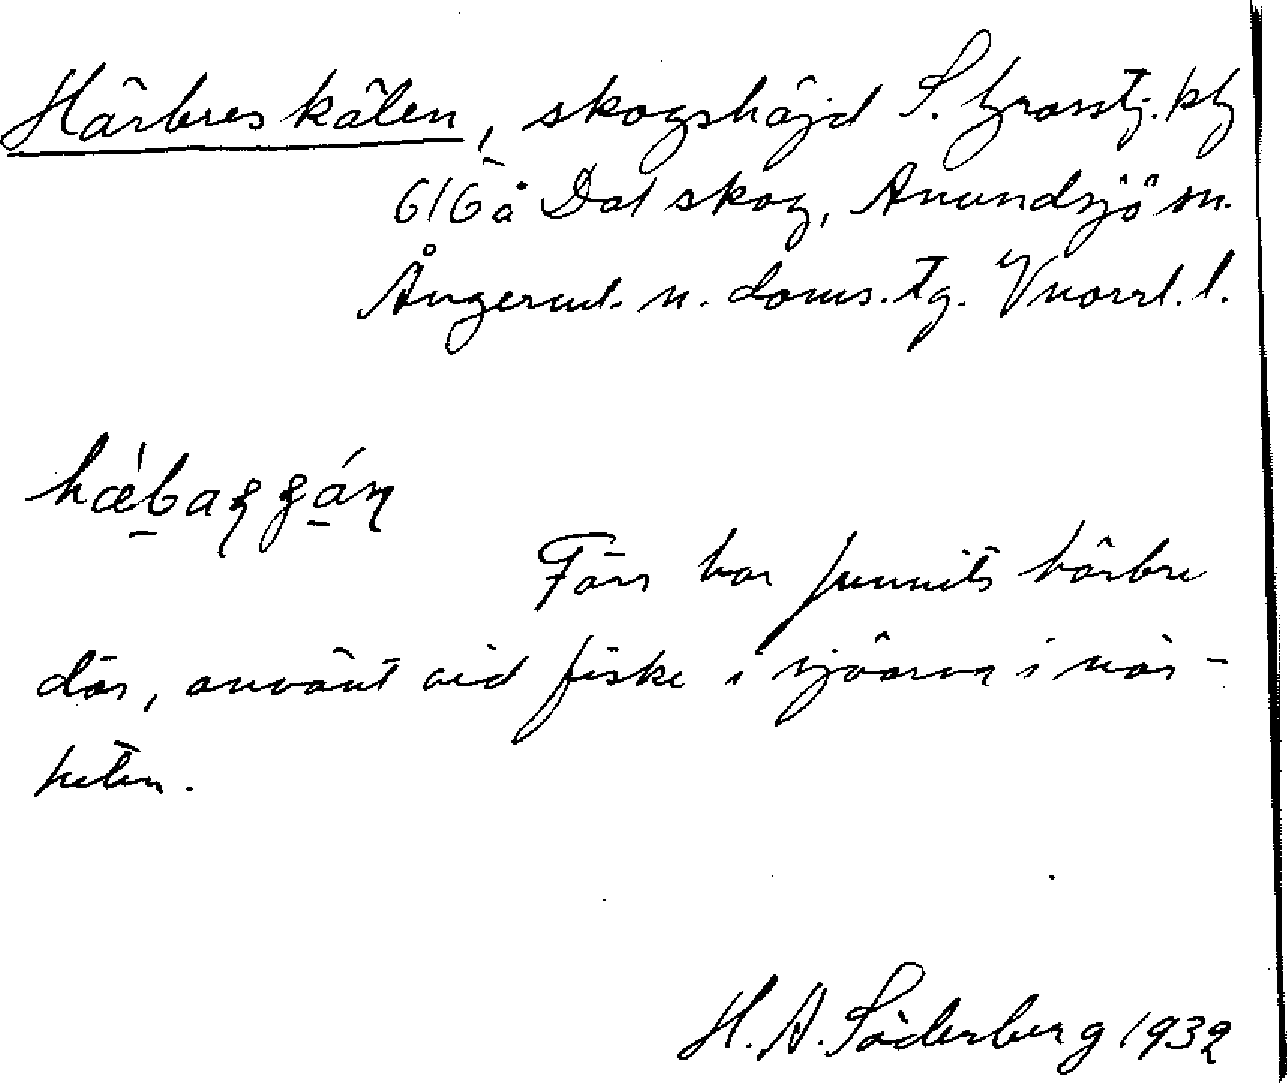 Härbreskälen, skogshöjd S. Grasstj. ptg
616 å Dal skog, Anundsjö sn.
Ångerml. n. doms. tg. Vnorrl. l.
Förr har funnits härbre
där, använt vid fiske i sjöarna i när-
heten.
H. A. Söderberg 1932